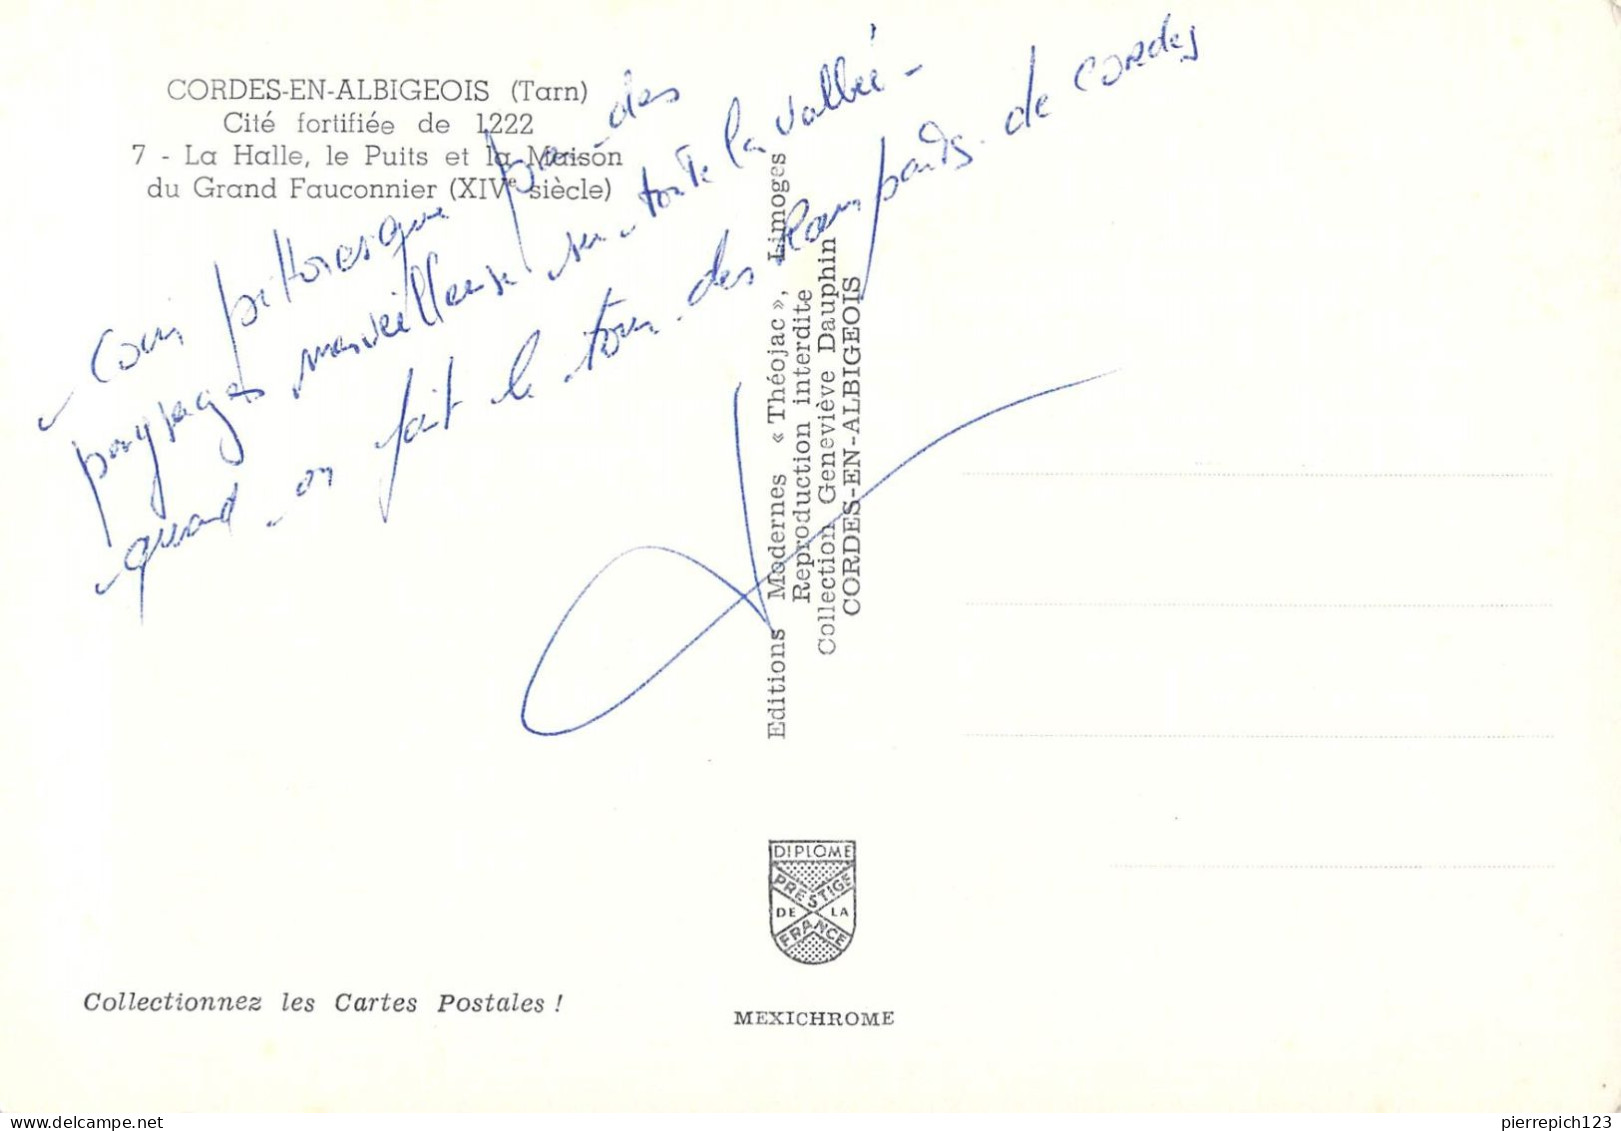 CORDES-EN-ALBIGEOIS (Tarn)
Cité fortifiée de 1222
7 - La Halle, le Puits et la Maison
du Grand Fauconnier (XIVe siècle)
Coin pittoresque par des
paysages merveilleuse sur toute la vallée -
quand on fait le tour des Remparts de CORdes
Editions Modernes « Théojac », Limoges
Reproduction interdite
Collection Geneviève Dauphin
CORDES-EN-ALBIGEOIS
DIPLOME
PRESTIGE
DE LA
FRANCE
Collectionnez les Cartes Postales !
MEXICHROME
pierrepich123